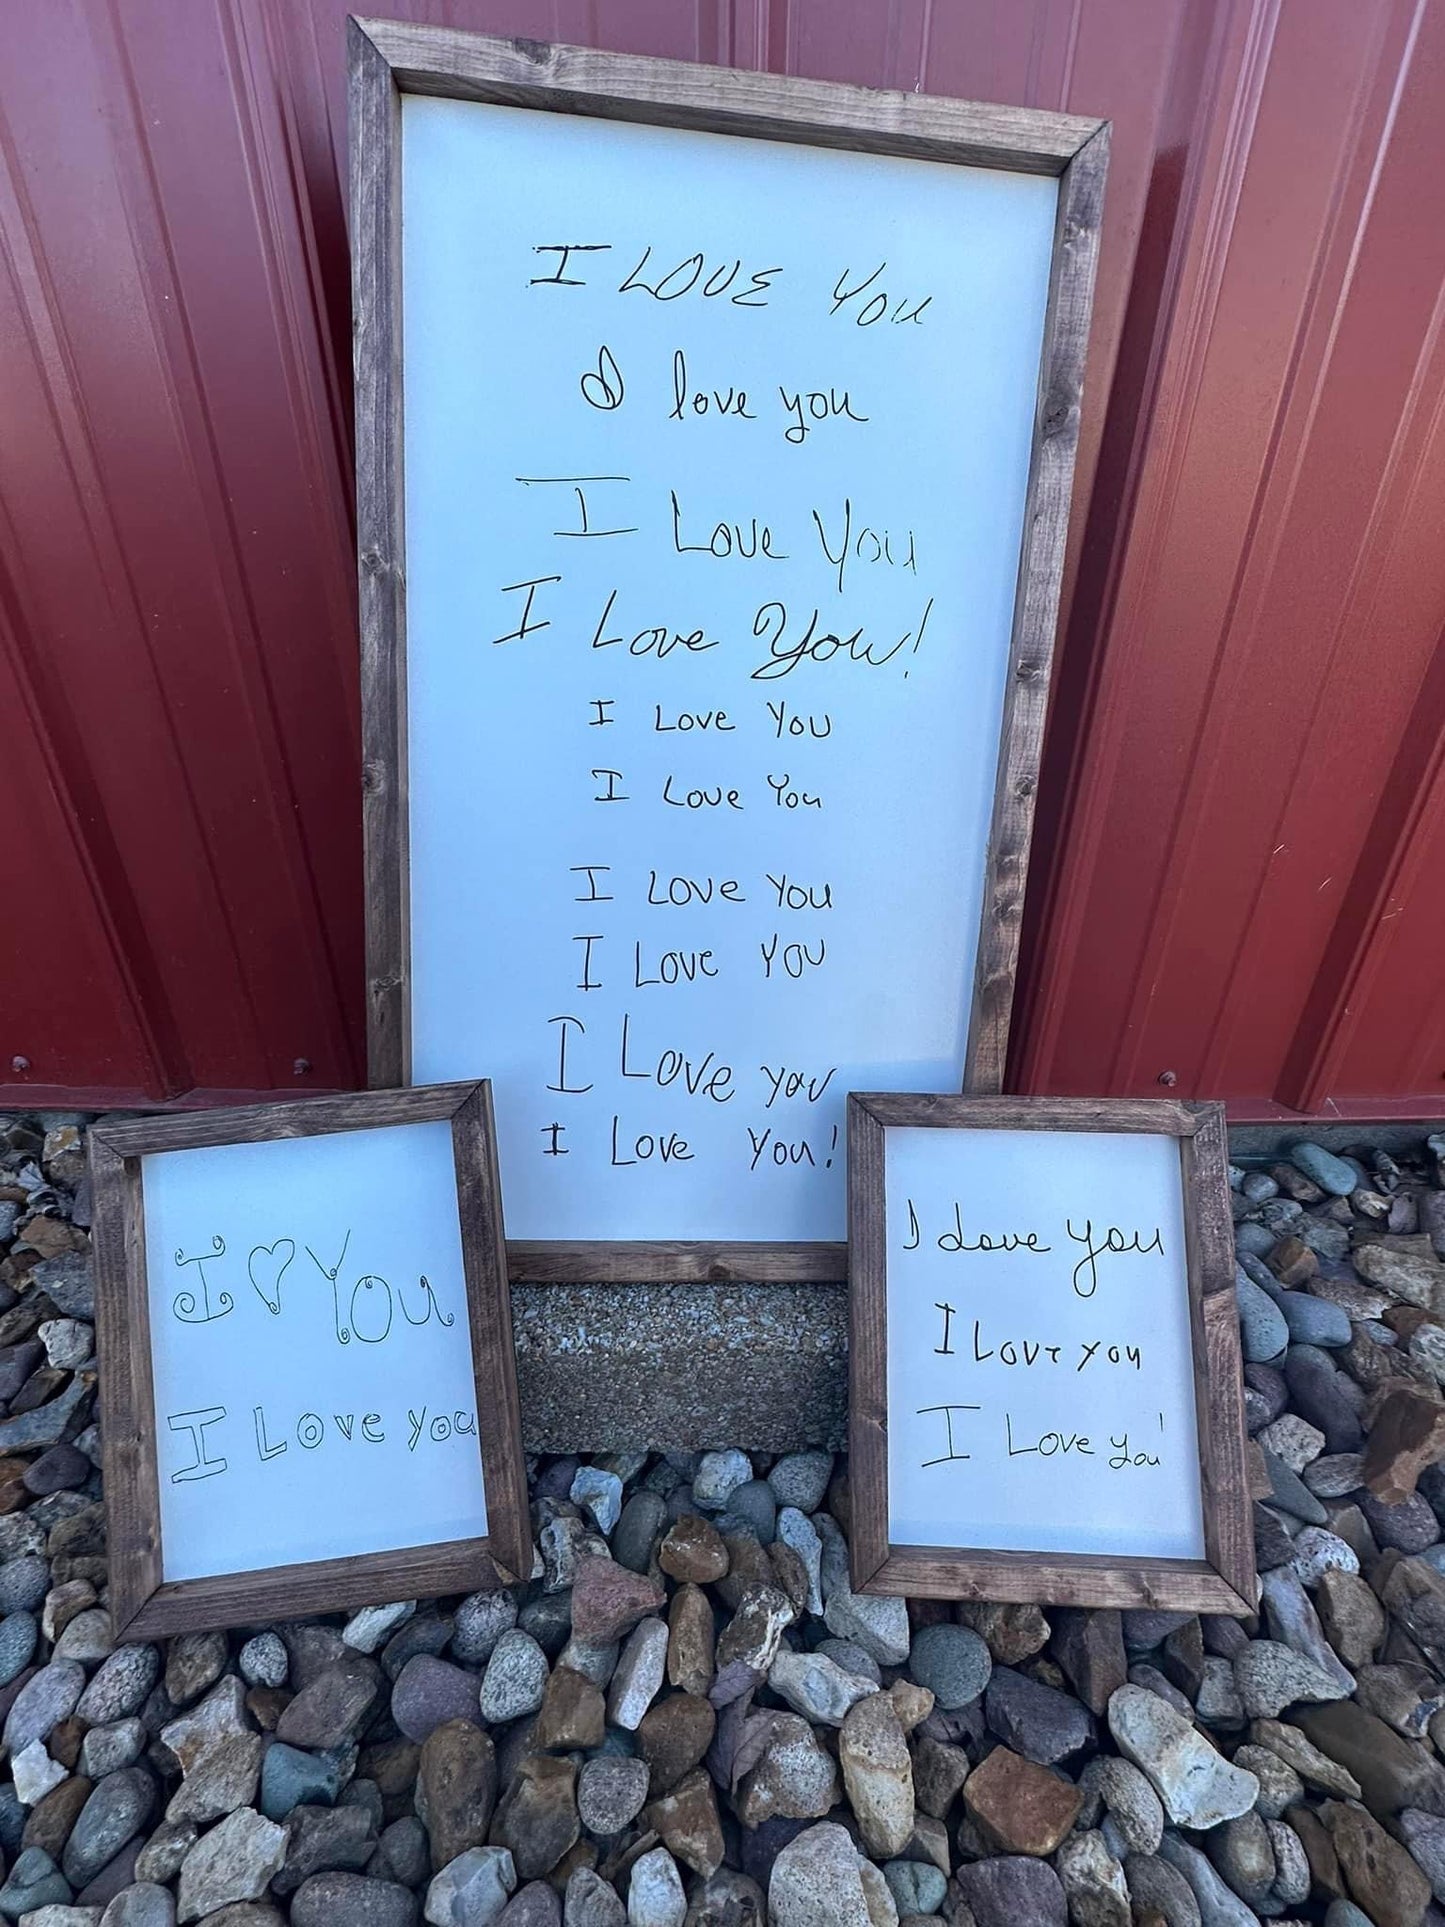 I LOVE YOU
I love you
I Love You
I Love You!
I Love You
I Love You
I Love You
I Love You
I Love you
I Love You!
I ♡ You
I Love you
I Love you
I Love you
I Love you!